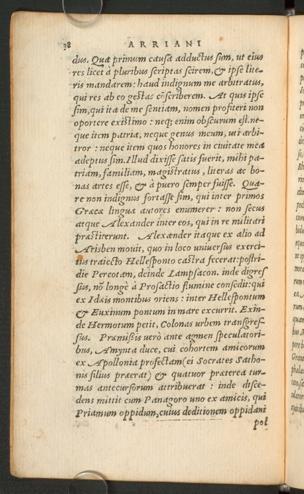 38 ARRIANI
dus. Qua primum causa adductus sum, ut eius
res licet à pluribus scriptas scirem, & ipse lite-
ris mandarem: haud indignum me arbitratus,
qui res ab eo gestas cōscriberem. At quis ipse
sim, qui ita de me sentiam, nomen profiteri non
oportere existimo: neq; enim obscurum est. ne-
que item patria, neque genus meum, ut arbi-
tror: neque item quos honores in ciuitate mea
adeptus sim. Illud dixisse satis fuerit, mihi pa-
triam, familiam, magistratus, literas ac bo-
nas artes esse, & à puero semper fuisse. Qua-
re non indignus fortasse sim, qui inter primos
Græcæ linguæ autores enumerer: non secus
atque Alexander inter eos, qui in re militari
præstiterunt. Alexander itaque ex alio ad
Arisben mouit, quo in loco uniuersus exerci-
tus traiecto Hellesponto castra fecerat: postri-
die Percotam, deinde Lampsacon. inde digres-
sus, nō longè à Prosactio flumine consedit: qui
ex Idæis montibus oriens: inter Hellespontum
& Euxinum pontum in mare excurrit. Exin-
de Hermotum petit, Colonas urbem transgres-
sus. Præmissis uerò ante agmen speculatori-
bus, Amynta duce, cui cohortem amicorum
ex Apollonia profectam (ei Socrates Satho-
nis filius præerat) & quatuor præterea tur-
mas antecursorum attribuerat: inde disce-
dens mittit cum Panagoro uno ex amicis, qui
Priamum oppidum, cuius deditionem oppidani
pol